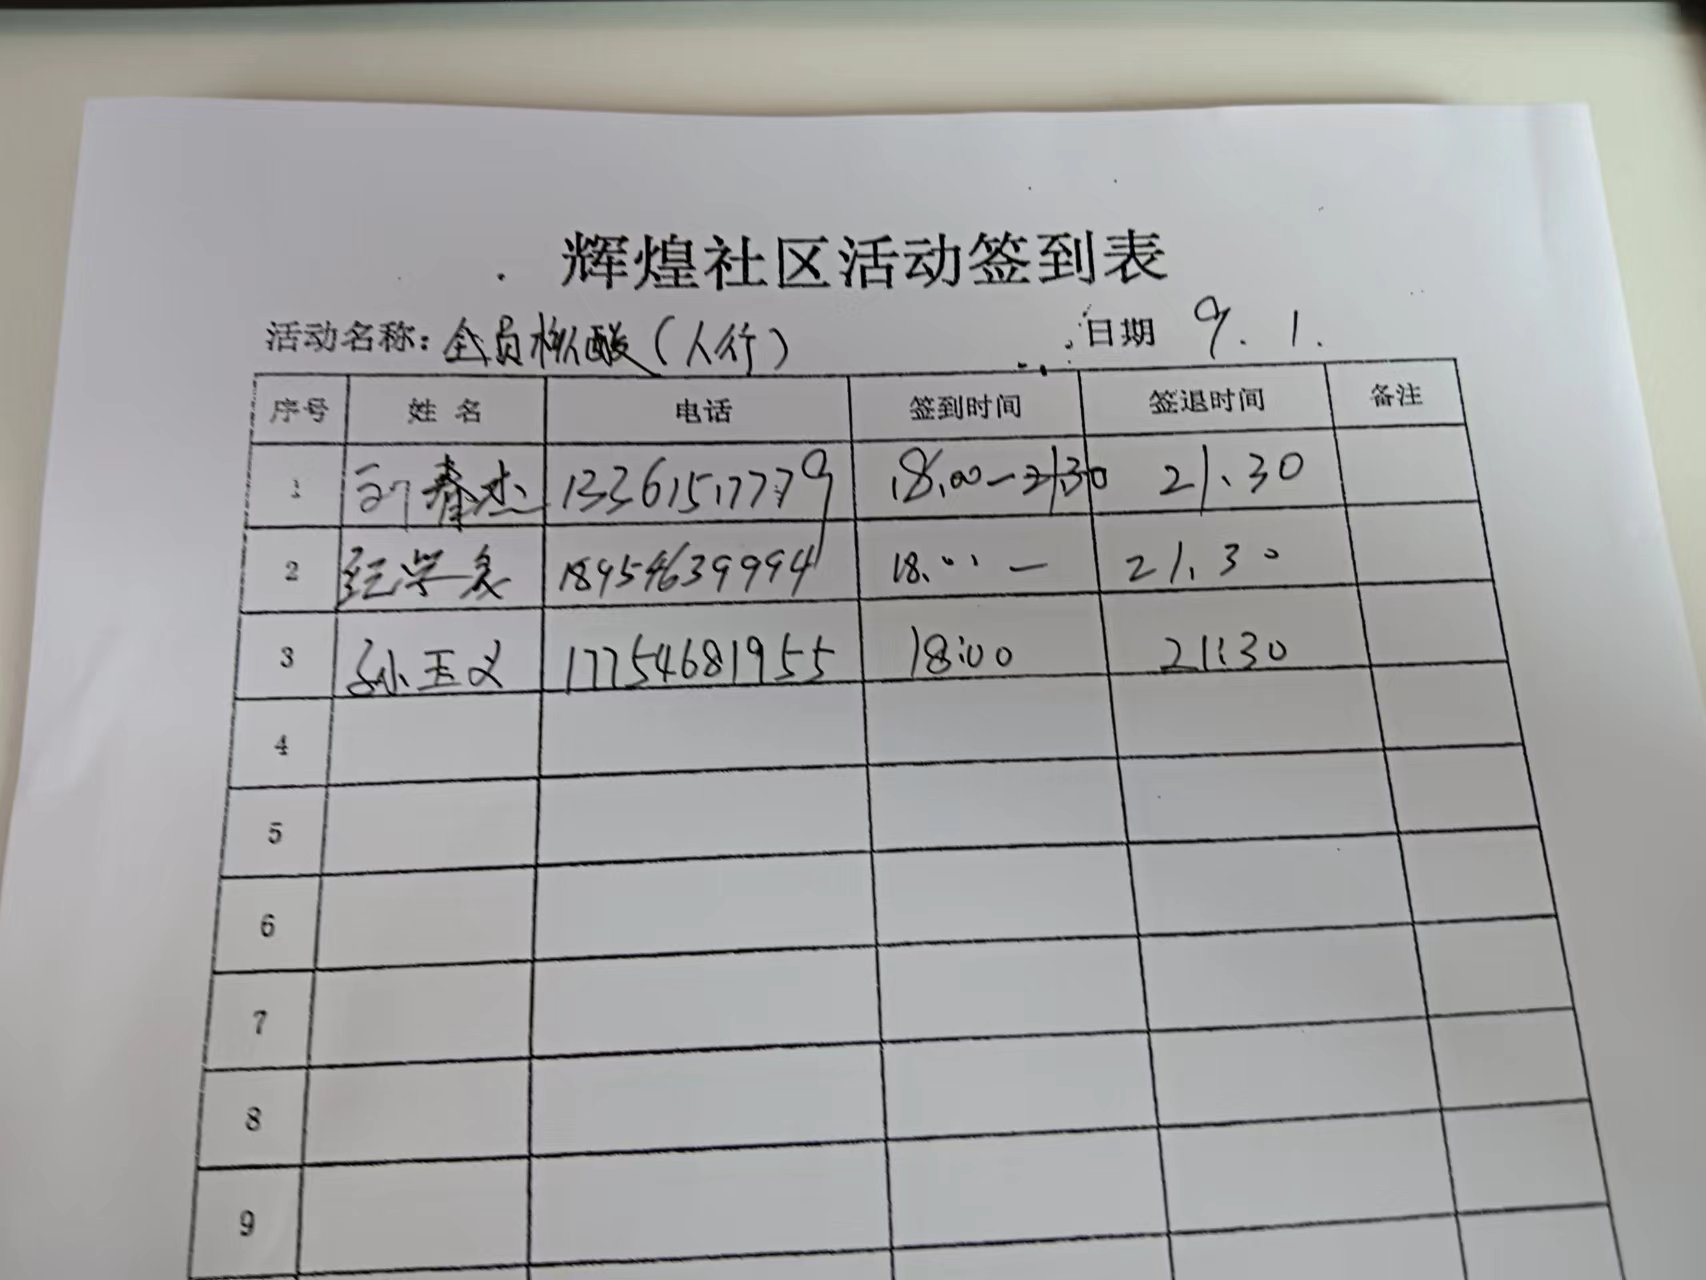 辉煌社区活动签到表
活动名称：全员核酸（人行） 日期 9.1.
序号 姓名 电话 签到时间 签退时间 备注
1 春杰 13361517779 18.00－21.30 21.30
2 学 18954639994 18.00－ 21.30
3 孙玉文 17754681955 18:00 21:30
4
5
6
7
8
9